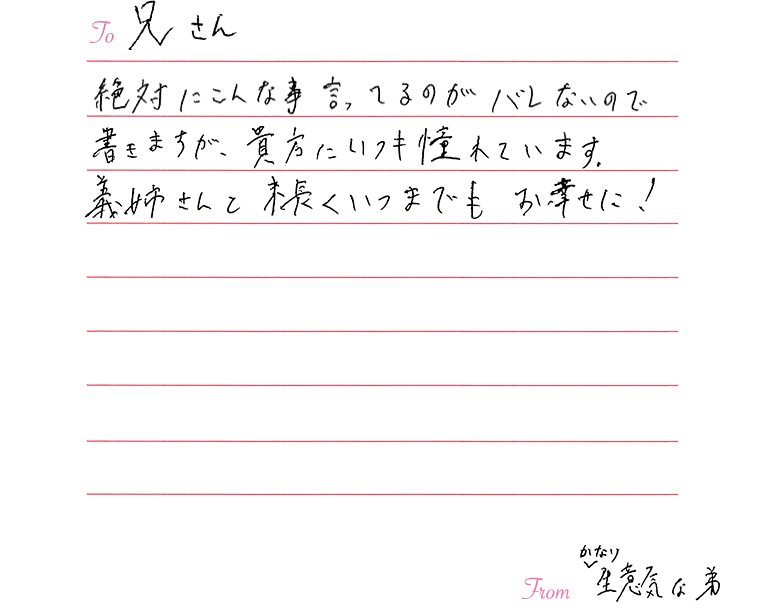 To 兄さん
絶対にこんな事言ってるのがバレないので
書きますが、貴方にいつも憧れています。
義姉さんと末長くいつまでもお幸せに!
かなり
From 生意気な弟